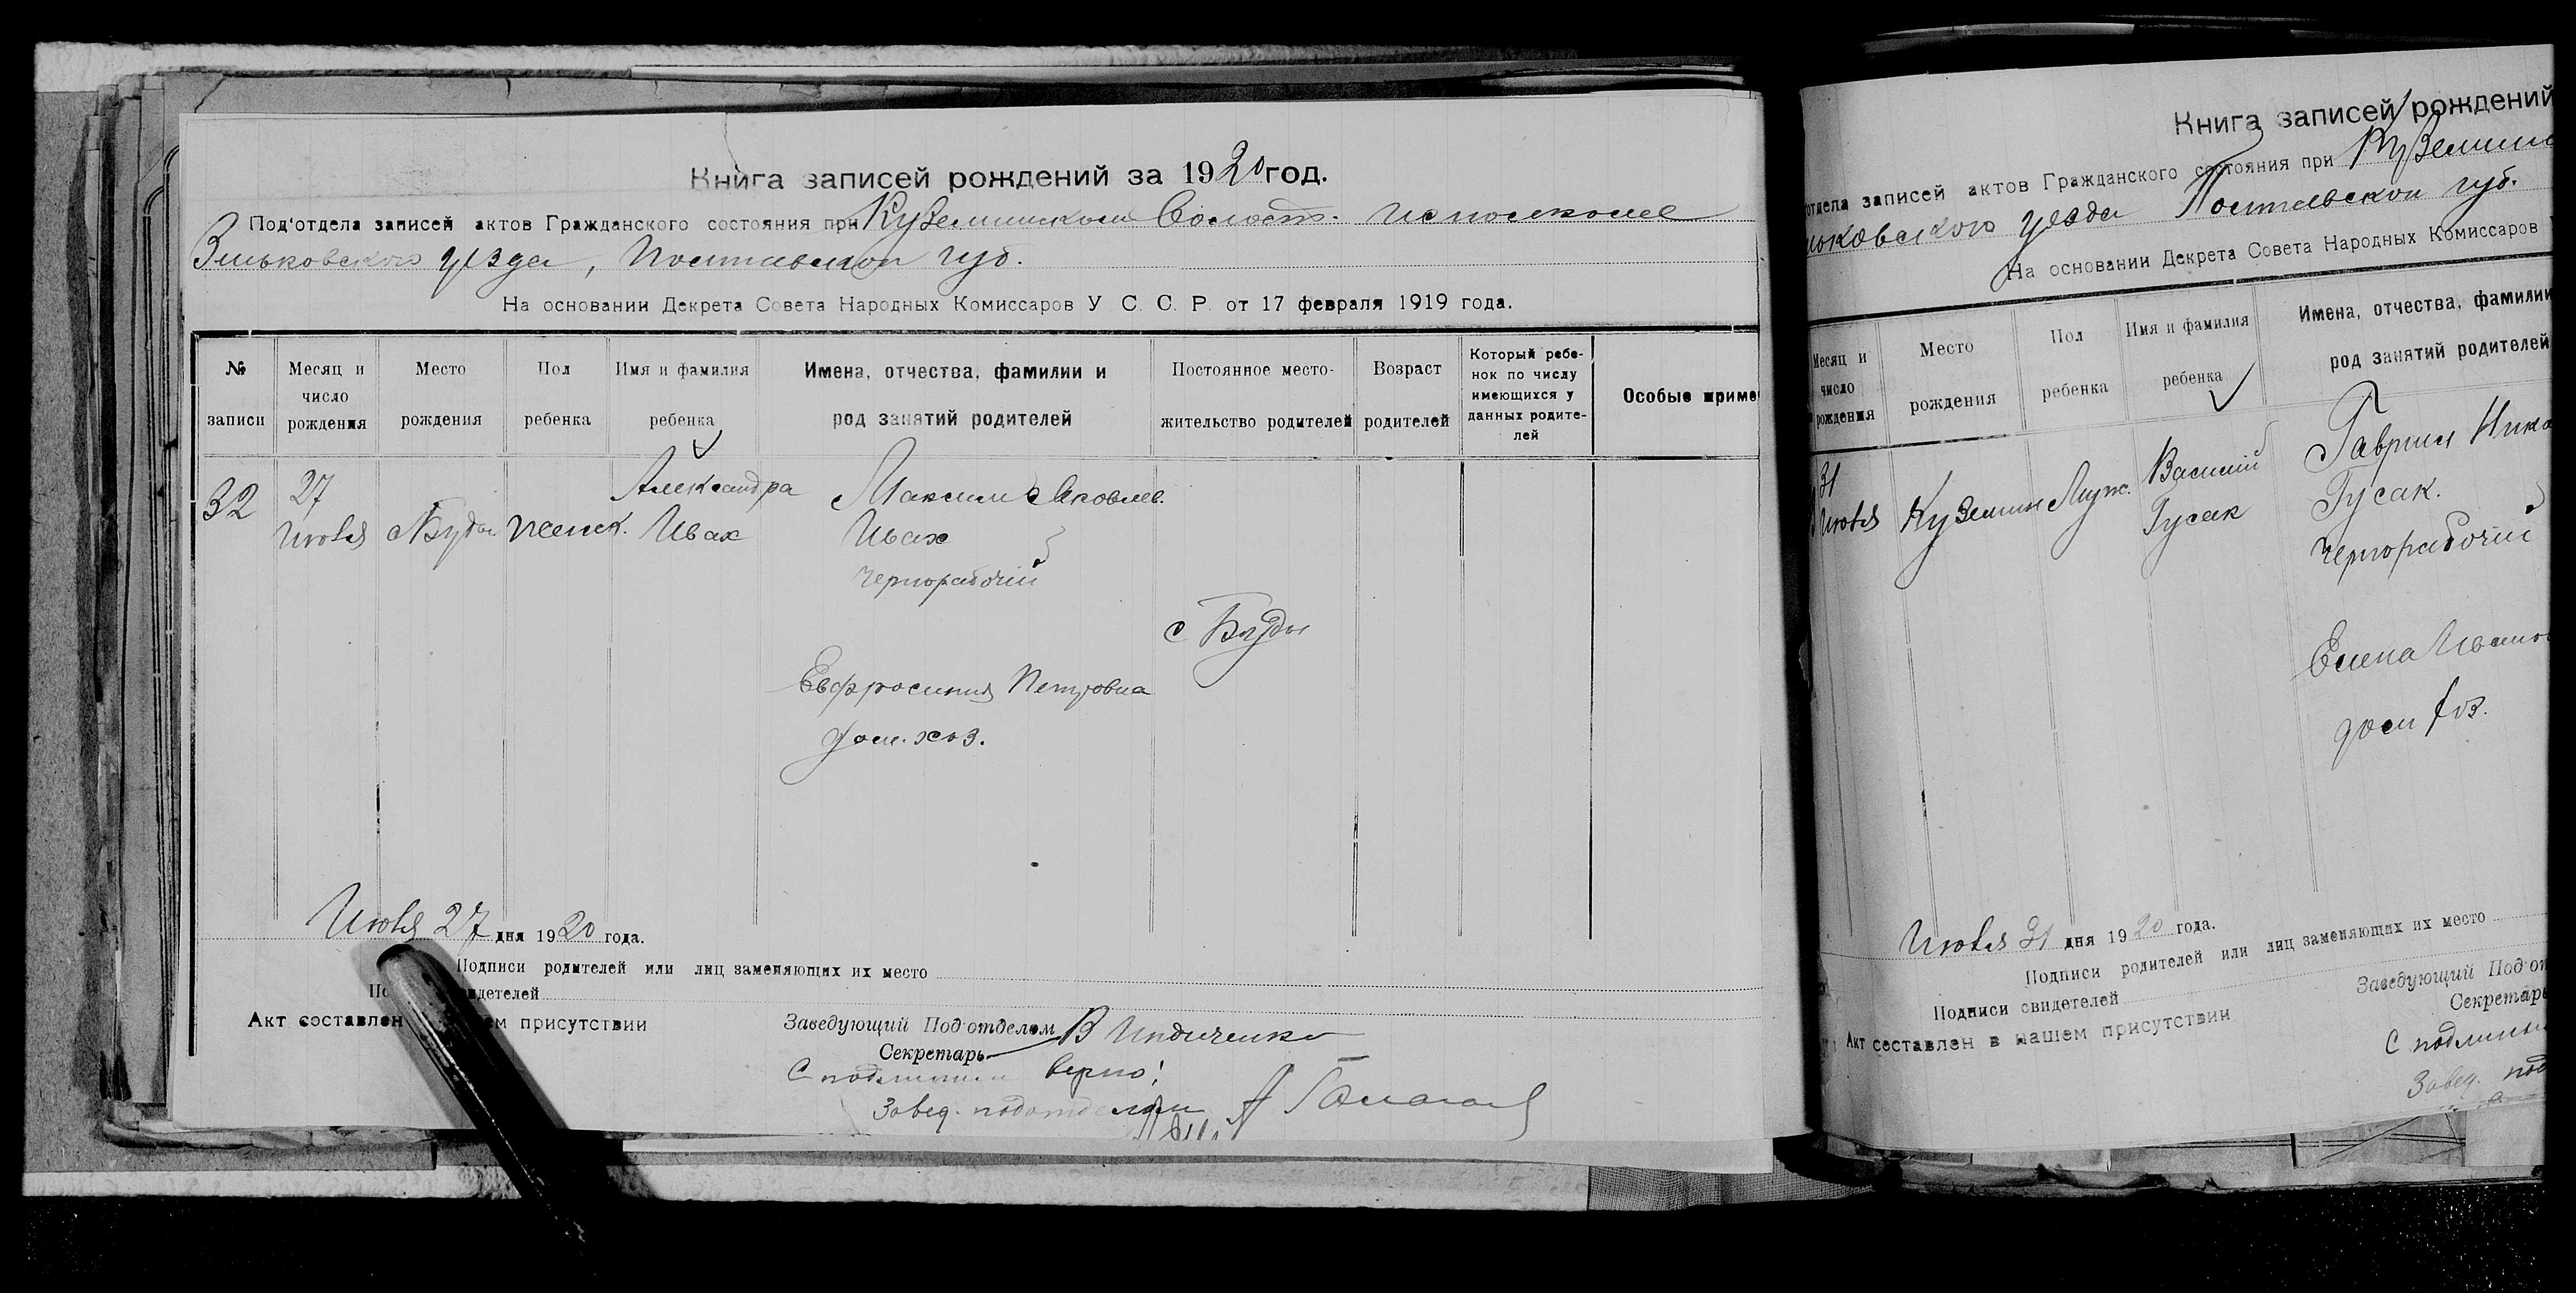 Книга записей рождений за 1920 год.
Под'отдела записей актов Гражданского состояния при Куземинском Волост. исполкоме
Зиньковского уезда, Полтавской губ.
На основании Декрета Совета Народных Комиссаров У С. С. Р. от 17 февраля 1919 года.
№ записи
Месяц и число рождения
Место рождения
Пол ребенка
Имя и фамилия ребенка
Имена, отчества, фамилии и род занятий родителей
Постоянное место-жительство родителей
Возраст родителей
Который ребе-нок по числу имеющихся у данных родите-лей
Особые приме
32
27 Июля
с Буды
женск.
Александра Ивах
Максим Яковлев.
Ивах
Чернорабочий
с Буды
Евфросиния Петровна
дом. хоз.
Июля 27 дня 1920 года.
Подписи родителей или лиц заменяющих их место
идетелей
Акт составлен ем присутствии
Заведующий Под'отделом В
Секретарь
С подлинным верно!
Завед. подотделом
Книга записей рождений
отдела записей актов Гражданского состояния при Куземинс
ньковского уезда Полтавской губ.
На основании Декрета Совета Народных Комиссаров
Месяц и число рождения
Место рождения
Пол ребенка
Имя и фамилия ребенка
Имена, отчества, фамилии
род занятий родителей
31 Июля
Куземин
Муж.
Василий Гусак
Гавриил Нико
Гусак.
Чернорабочий
Елена Ивано
дом хоз.
Июля 31 дня 1920 года.
Подписи родителей или лиц заменяющих их место
Подписи свидетелей
Акт составлен в нашем присутствии
Заведующий Под'от
Секретарь
С подлинн
Завед. под